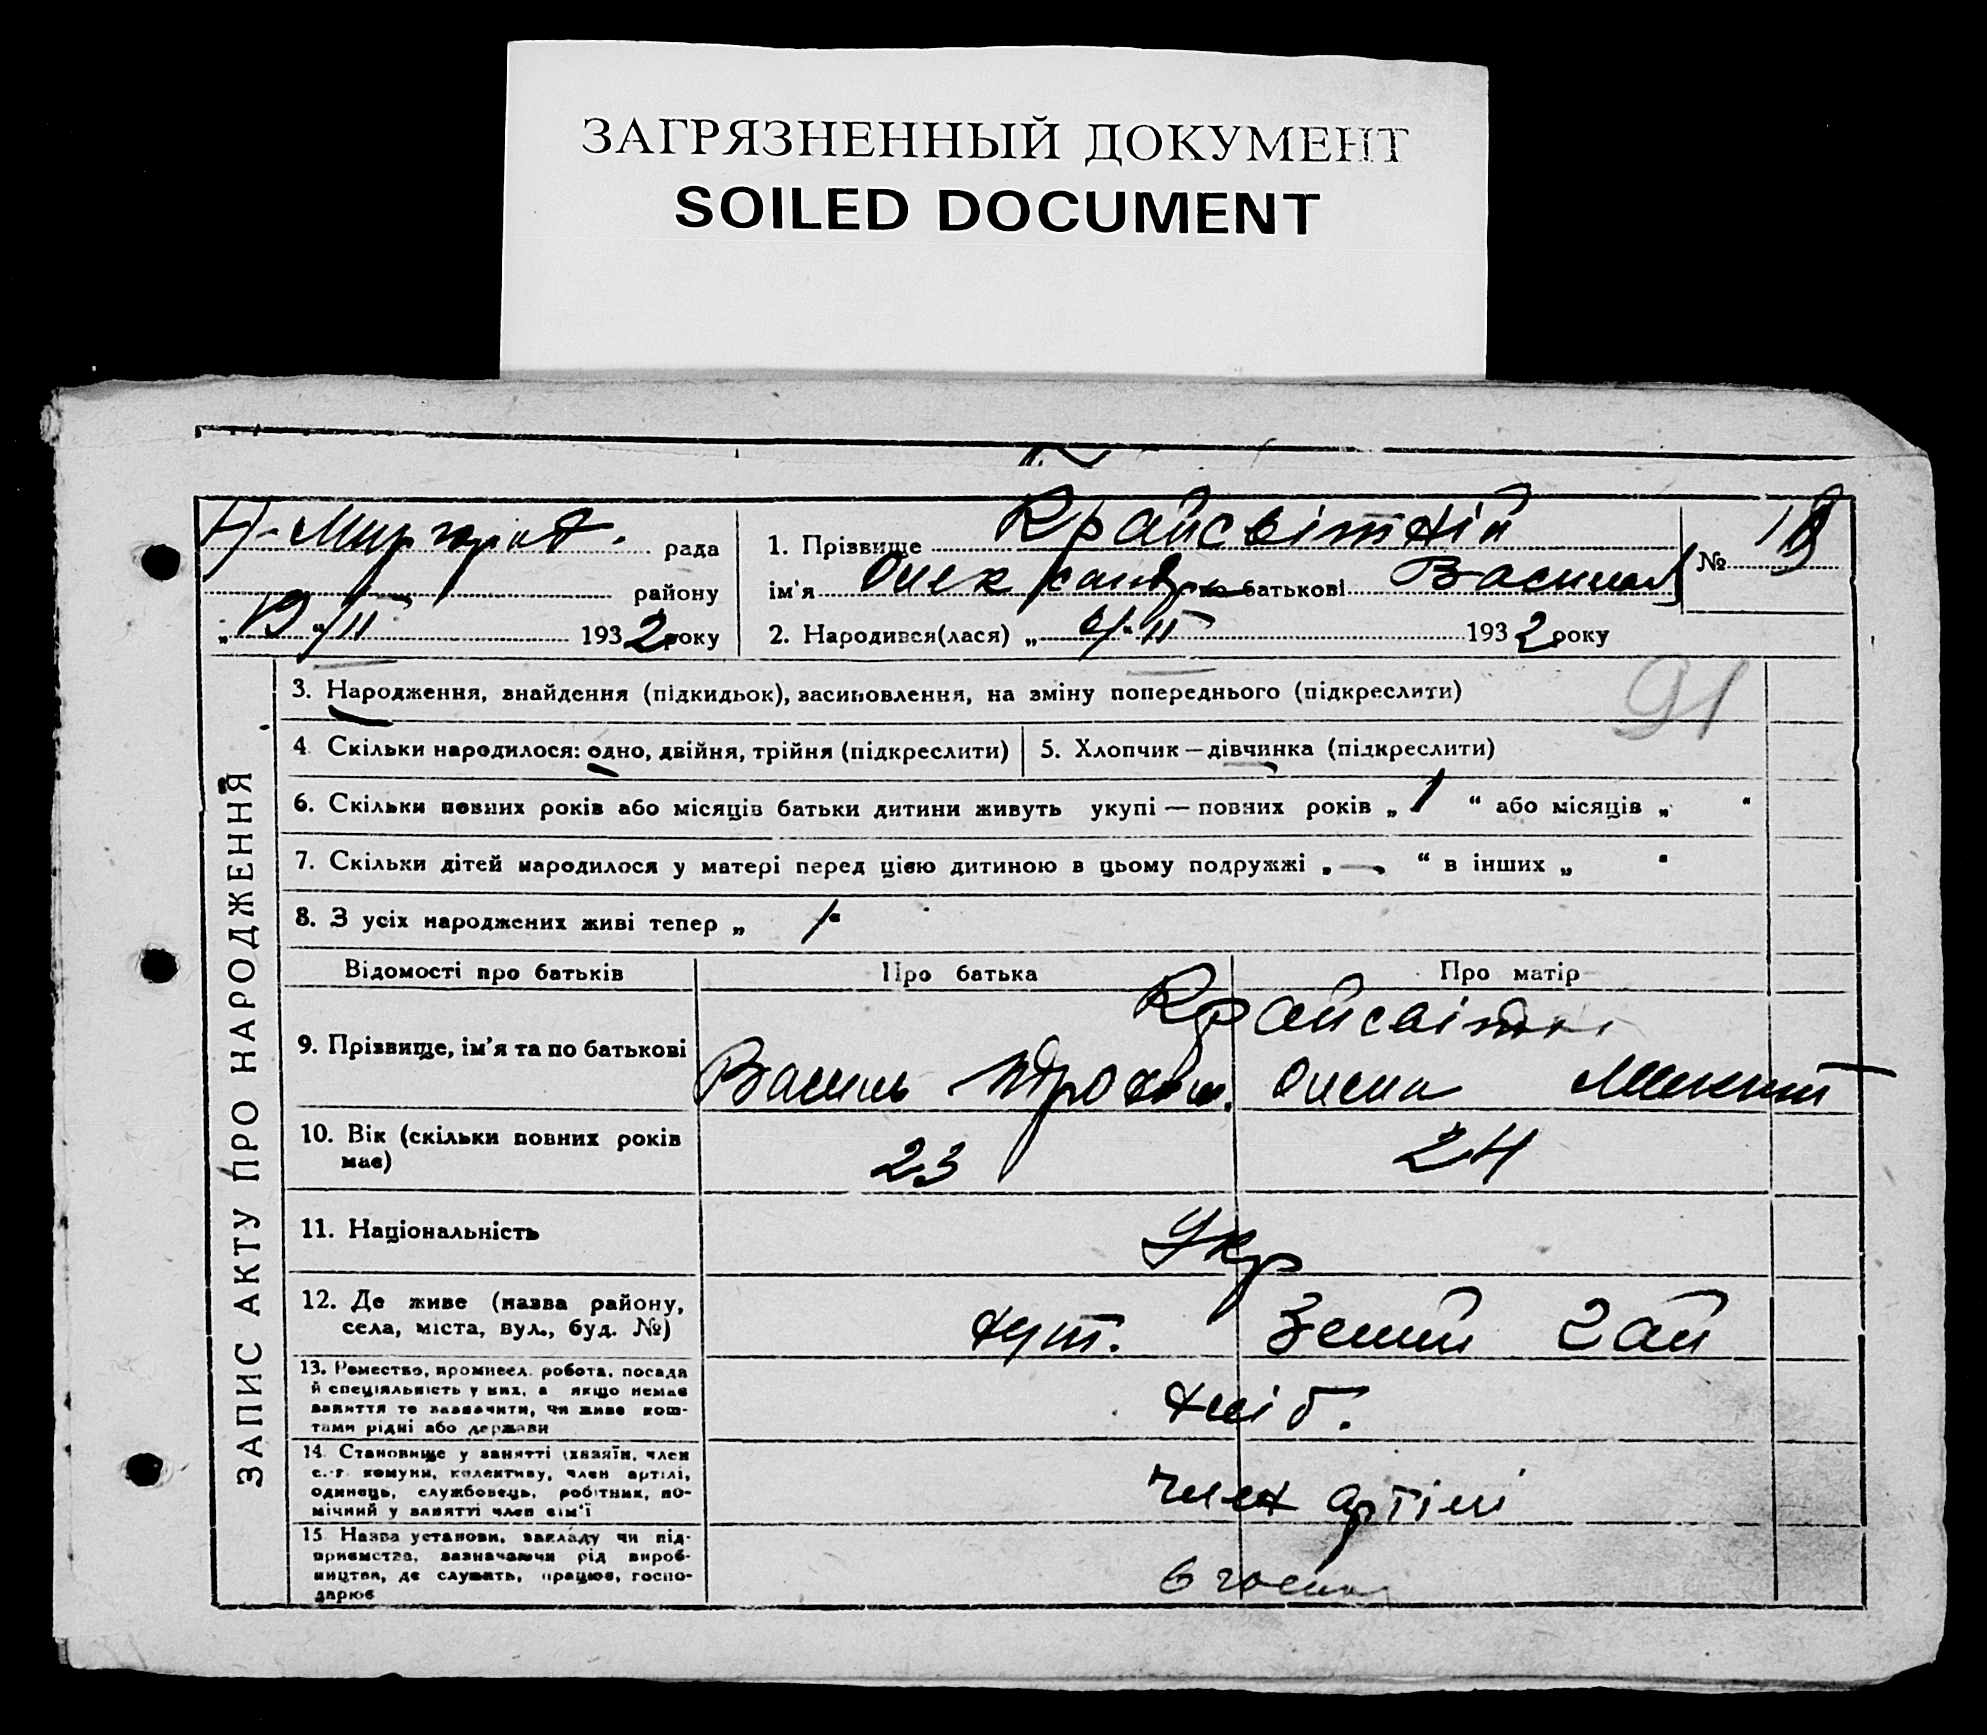 ЗАГРЯЗНЕННЫЙ ДОКУМЕНТ
SOILED DOCUMENT
Н-Миргород. рада
району
„19“/ІІ 1932 року
1. Прізвище Крайсвітній
ім'я Олександр по батькові Васильов
№ 18
2. Народився(лася) „ “ ІІ 1932 року
91
ЗАПИС АКТУ ПРО НАРОДЖЕННЯ
3. Народження, знайдення (підкидьок), засиновлення, на зміну попереднього (підкреслити)
4. Скільки народилося: одно, двійня, трійня (підкреслити)
5. Хлопчик — дівчинка (підкреслити)
6. Скільки повних років або місяців батьки дитини живуть укупі — повних років „ 1 “ або місяців „ “
7. Скільки дітей народилося у матері перед цією дитиною в цьому подружжі „ — “ в інших „ “
8. З усіх народжених живі тепер „ 1 “
Відомості про батьків Про батька Про матір
9. Прізвище, ім'я та по батькові
Крайсвітні
Василь Олена
10. Вік (скільки повних років має) 23 24
11. Національність Укр
12. Де живе (назва району, села, міста, вул., буд. №) хут. Гай
13. Ремество, промисел. робота, посада й спеціяльність у них, а якщо немає заняття то зазначити, чи живе коштами рідні або держави
хліб.
14. Становище у занятті (хазяїн, член с.-г. комуни, колективу, член артілі, одинець, службовець, робітник, помічний у занятті член сім'ї
член артілі
15. Назва установи, закладу чи підприємства, зазначаючи рід виробництва, де служать, працює, господарює